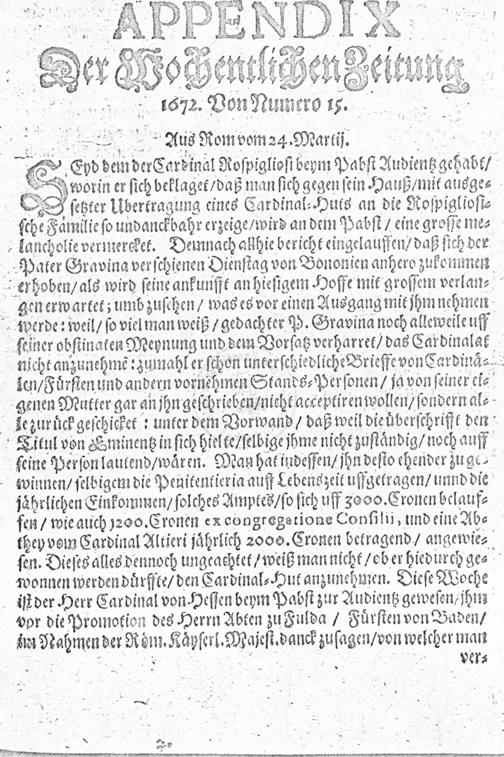 APPENDIX
Der Wochentlichen Zeitung
1672. Von Numero 15.
Aus Rom vom 24. Martij.
SEyd dem der Cardinal Rospigliosi beym Pabst Audientz gehabt/
worin er sich beklaget/daß man sich gegen sein Hauß/mit ausge-
setzter Ubertragung eines Cardinal-Huts an die Rospigliosi-
sche Familie so undanckbahr erzeige/wird an dem Pabst / eine grosse me-
lancholie vermercket. Demnach allhie bericht eingelauffen/daß sich der
Pater Gravina verschienen Dienstag von Bononien anhero zukommen
erhoben/als wird seine ankunfft an hiesigem Hoffe mit grossem verlan-
gen erwartet; umb zusehen / was es vor einen Ausgang mit jhm nehmen
werde: weil/so viel man weiß / gedachter P. Gravina noch alleweile uff
seiner obstinaten Meynung und dem Vorsatz verharret/das Cardinalat
nicht anzunehmē: zumahl er schon unterschiedliche Brieffe von Cardinä-
len/Fürsten und andern vornehmen Stands-Personen / ja von seiner ei-
genen Mutter gar an jhn geschrieben/nicht acceptiren wollen/sondern al-
le zurück geschicket : unter dem Vorwand / daß weil die überschrifft den
Titul von Eminentz in sich hielte/selbige jhme nicht zuständig/noch auff
seine Person lautend/wären. Man hat indessen/jhn desto ehender zu ge-
winnen/selbigem die Penitentieria auff Lebenszeit uffgetragen/unnd die
jährlichen Einkommen/solches Amptes/so sich uff 3000. Cronen belauf-
fen/ wie auch 1200. Cronen ex congregatione Consilii, und eine Ab-
they vom Cardinal Altieri jährlich 2000. Cronen betragend/ angewie-
sen. Dieses alles dennoch ungeachtet/weiß man nicht/ob er hiedurch ge-
wonnen werden dürffte/den Cardinal-Hut anzunehmen. Diese Woche
ist der Herr Cardinal von Hessen beym Pabst zur Audientz gewesen/jhm
vor die Promotion des Herrn Abten zu Fulda / Fürsten von Baden/
im Nahmen der Röm. Käyserl. Majest. danck zusagen/von welcher man
ver-